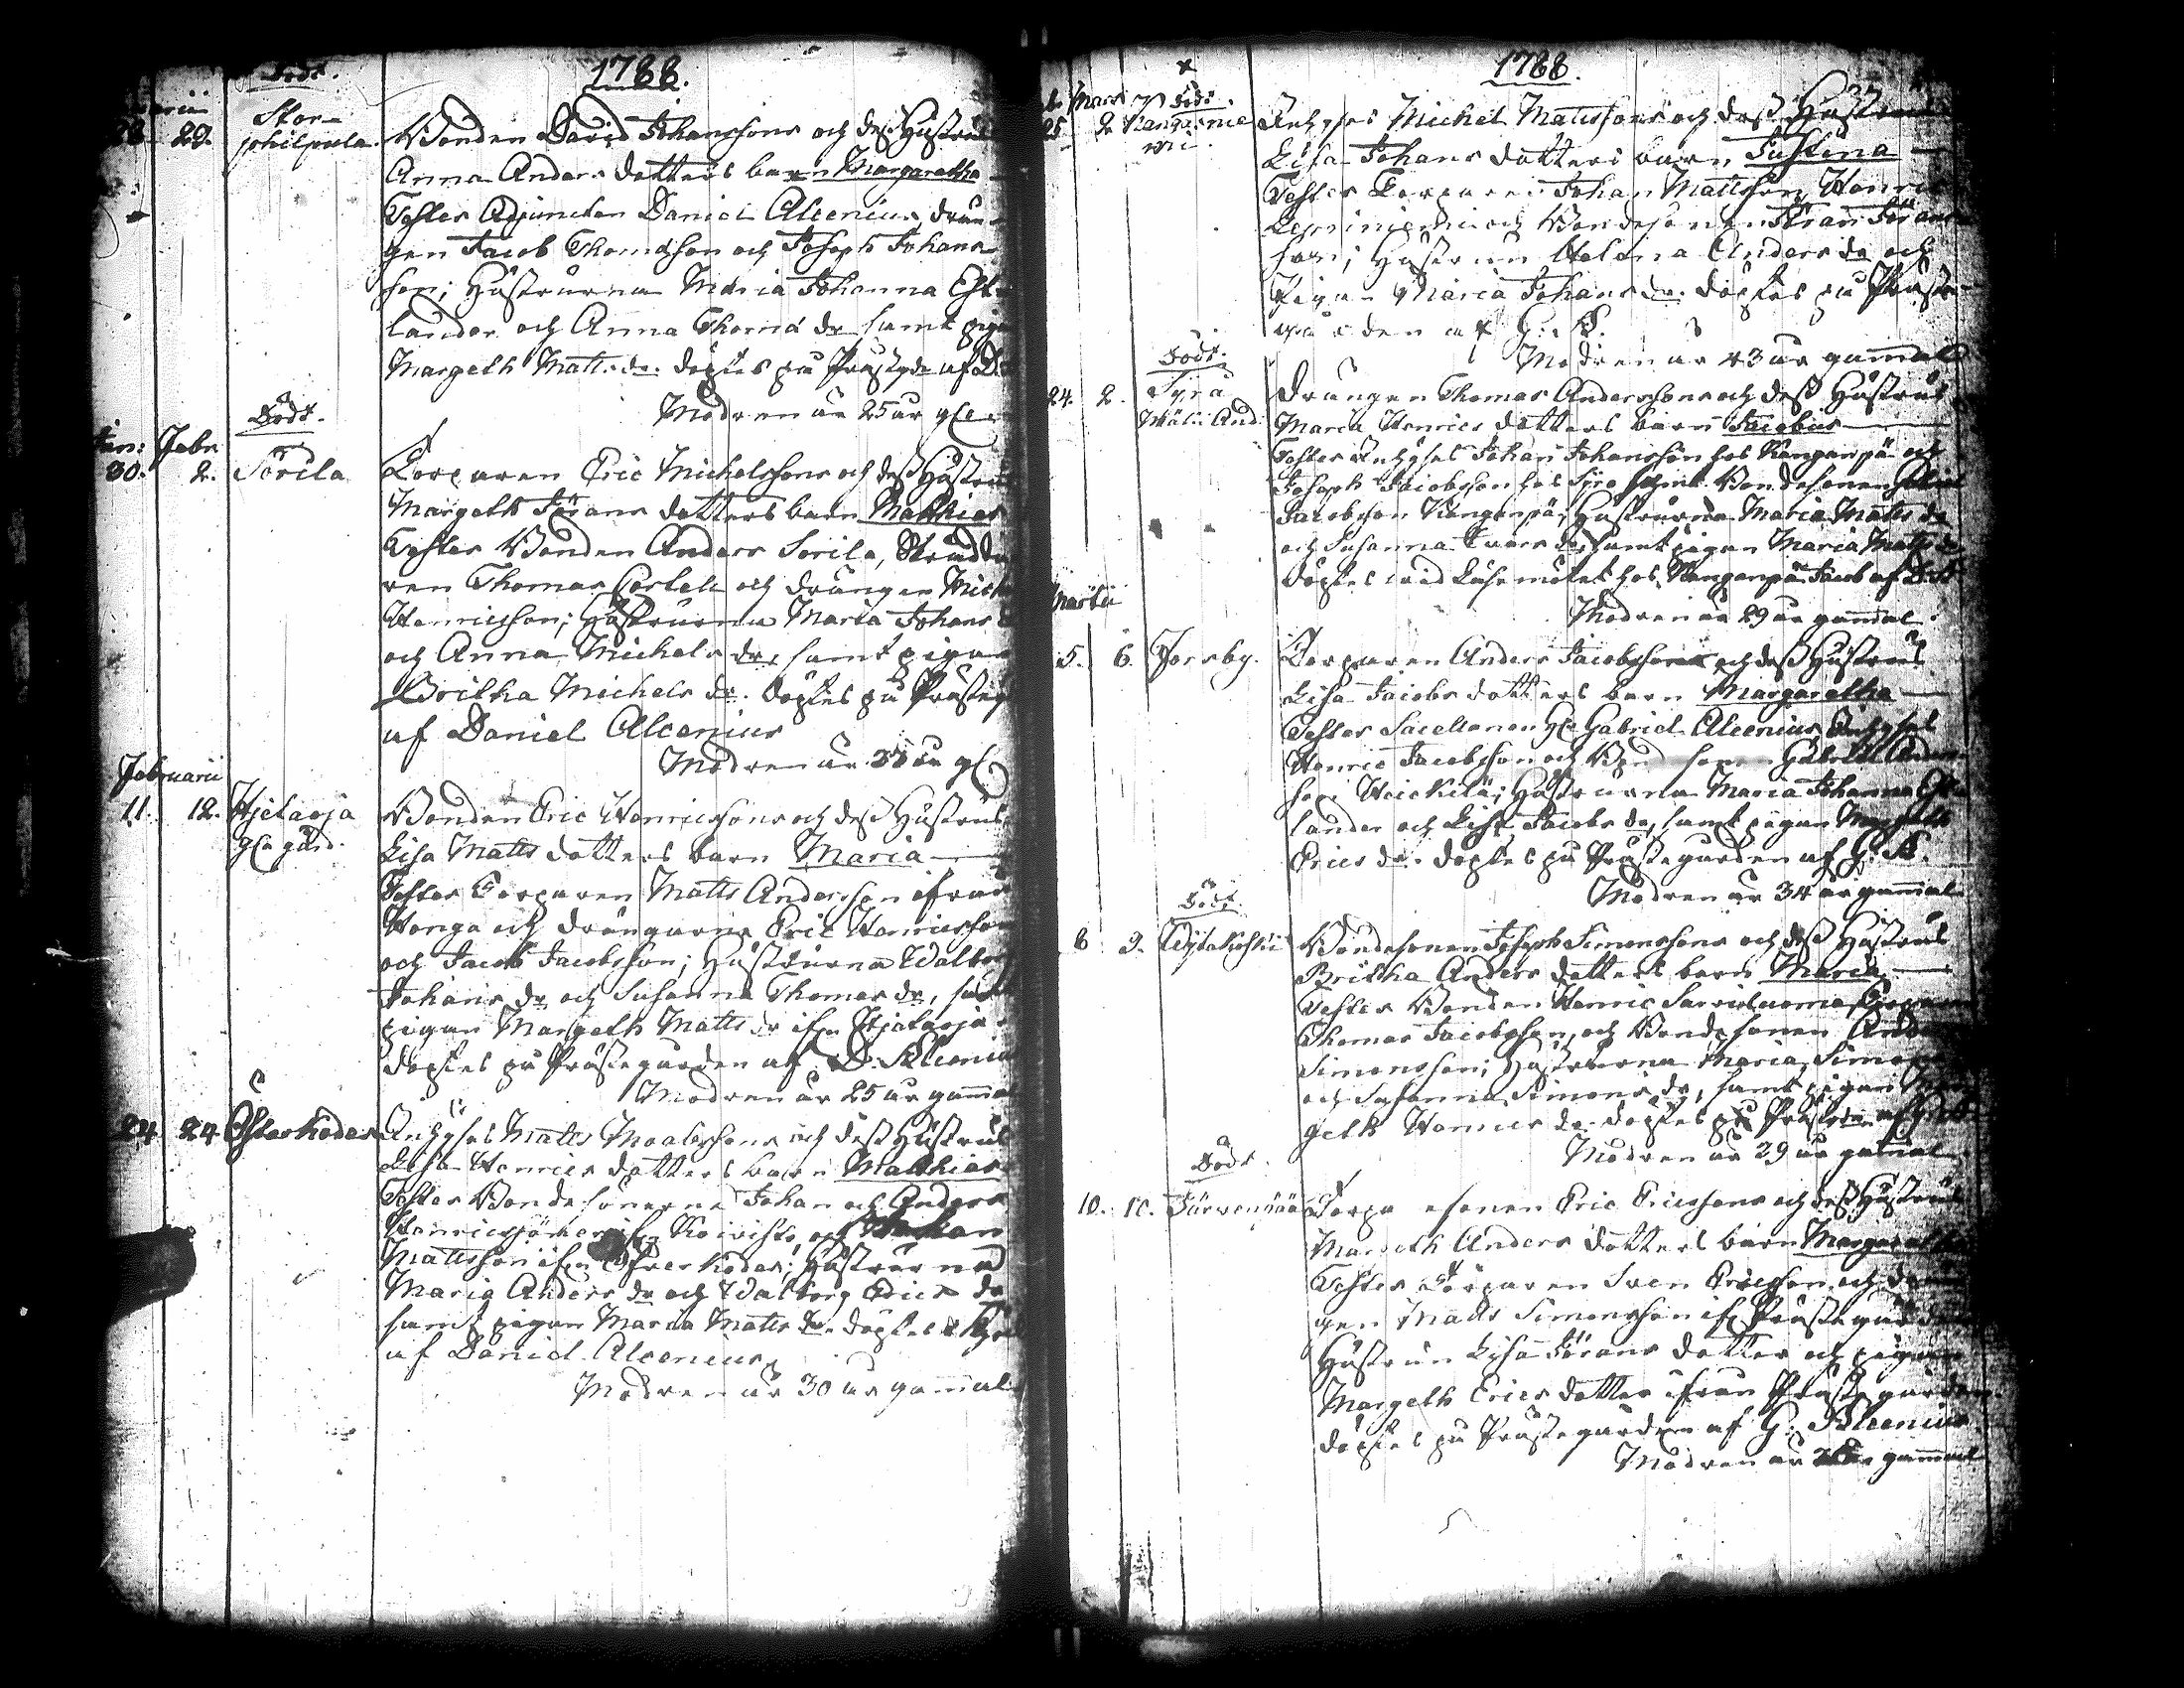 1788.
Födt.
28. 29. Stor-
philpula. Bonden David Johanssons och dess Hustrus
Anna Anders dotters barn Margaretha
Testes Adjuncten Daniel Alcenius, drän-
gen Jacob Thomasson och Joseph Johans-
son; Hustrurna Maria Johanna Est-
lander och Anna Thomæ dr samt pigan
Margeth Matts dr. döptes på Prästgdn af D.
Modren är 25 år gl.
Födt.
Jan: Febr.
30. 2. Sorila Torparen Eric Michelssons och dess Hustrus
Margeth Jörans dotters barn Matthias
Testes Bonden Anders Sorila, Skrädda-
ren Thomas och drängen Mich
Henricsson; Hustrurna Maria Johans
och Anna Michels dr, samt pigan
Britha Michels dr. döptes på Prästeg
af Daniel Alcenius
Modren är år gl
Februarii
11. 12. Hjelaoja
gla gård. Bonden Eric Henricssons och dess Hustrus
Lisa Matts dotters barn Maria
Testes Torparen Matts Andersson ifrån
Honga och drängarne Eric Henricsson
och Jacob Jacobsson; Hustrurna Walborg
Johans dr och Susanna Thomas dr, samt
pigan Margeth Matts dr ifrn Hjelaoja
döptes på Prästegården af D. Alcenius
Modren är 25 år gammal
24 24 Österkoder Inhyses Matts Mattssons och dess Hustrus
Lisa Henrics dotters barn Matthias
Testes Bondesönerne Johan och Anders
Henricssöner ifrn Koivisto, och
Mattsson ifrn Öfverkoder; Hustrurna
Maria Anders dr och Walborg Erics dr
samt pigan Maria Matts dr. döptes
af Daniel Alcenius
Modren är 30 år gammal
1788.
Mars Födt.
25. 2. Kangasnie
mi. Inhyses Michel Mattssons och dess Hustrus
Lisa Johans dotters barn Justina
Testes Torparen Johan Mattsson, Henric
Lepiniemi och Bondesonen Jöran Jörans
son; Hustrun Helena Anders dr och
Pigan Maria Johans dr. döptes på Präste-
gården af G: A.
Modren är 43 år gammal
Födt.
24. 2. Syrä
Drängen Thomas Anderssons och dess Hustrus
Maria Henrics dotters barn Jacobus
Testes Inhyses Johan Johansson hos Kanganpä och
Joseph Jacobsson hos Syrä samt Bondesonen
Jacobsson Kanganpä; Hustrurna Maria Matts dr
och Susanna Ivars dr, samt pigan Maria Matts dr
döptes wid Läsemötet hos Kanganpä Jacob af D: A
Modren är 29 år gammal.
Martii
5. 6. Forsby. Torparen Anders Jacobssons och dess Hustrus
Lisa Jacobs dotters barn Margaretha
Testes Sacellanen Hr Gabriel Alcenius, Inhyses
Henric Jacobsson och Bondsonen Gabriel Anders
son Heickilä; Hustrurna Maria Johanna Est
lander och Lisa Jacobs dr, samt pigan Margeth
Erics dr. döptes på Prästegården af G. A.
Modren är 34 år gammal
Födt.
8 9. Ylytakoski Bondesonen Joseph Simonssons och dess Hustrus
Britha Anders dotters barn Maria
Testes Bonden Henric Torparen
Thomas Jacobsson, och Bondesonen And
Simonsson; Hustrurna Maria Simons
och Susanna Simons dr, samt pigan Mar
geth Henrics dr. döptes på Prästgdn af
Modren är 29 år gammal
Födt.
10. 10. Järvenpää Torparesonen Eric Ericssons och dess Hustrus
Margeth Anders dotters barn Margaretha
Testes Torparen Sven Ericsson och drän
gen Matts Simonsson if Prästegården
Hustrun Lisa Jörans dotter och pigan
Margeth Erics dotter ifrån Prästegården.
döptes på Prästegården af G. Alcenius.
Modren är gammal